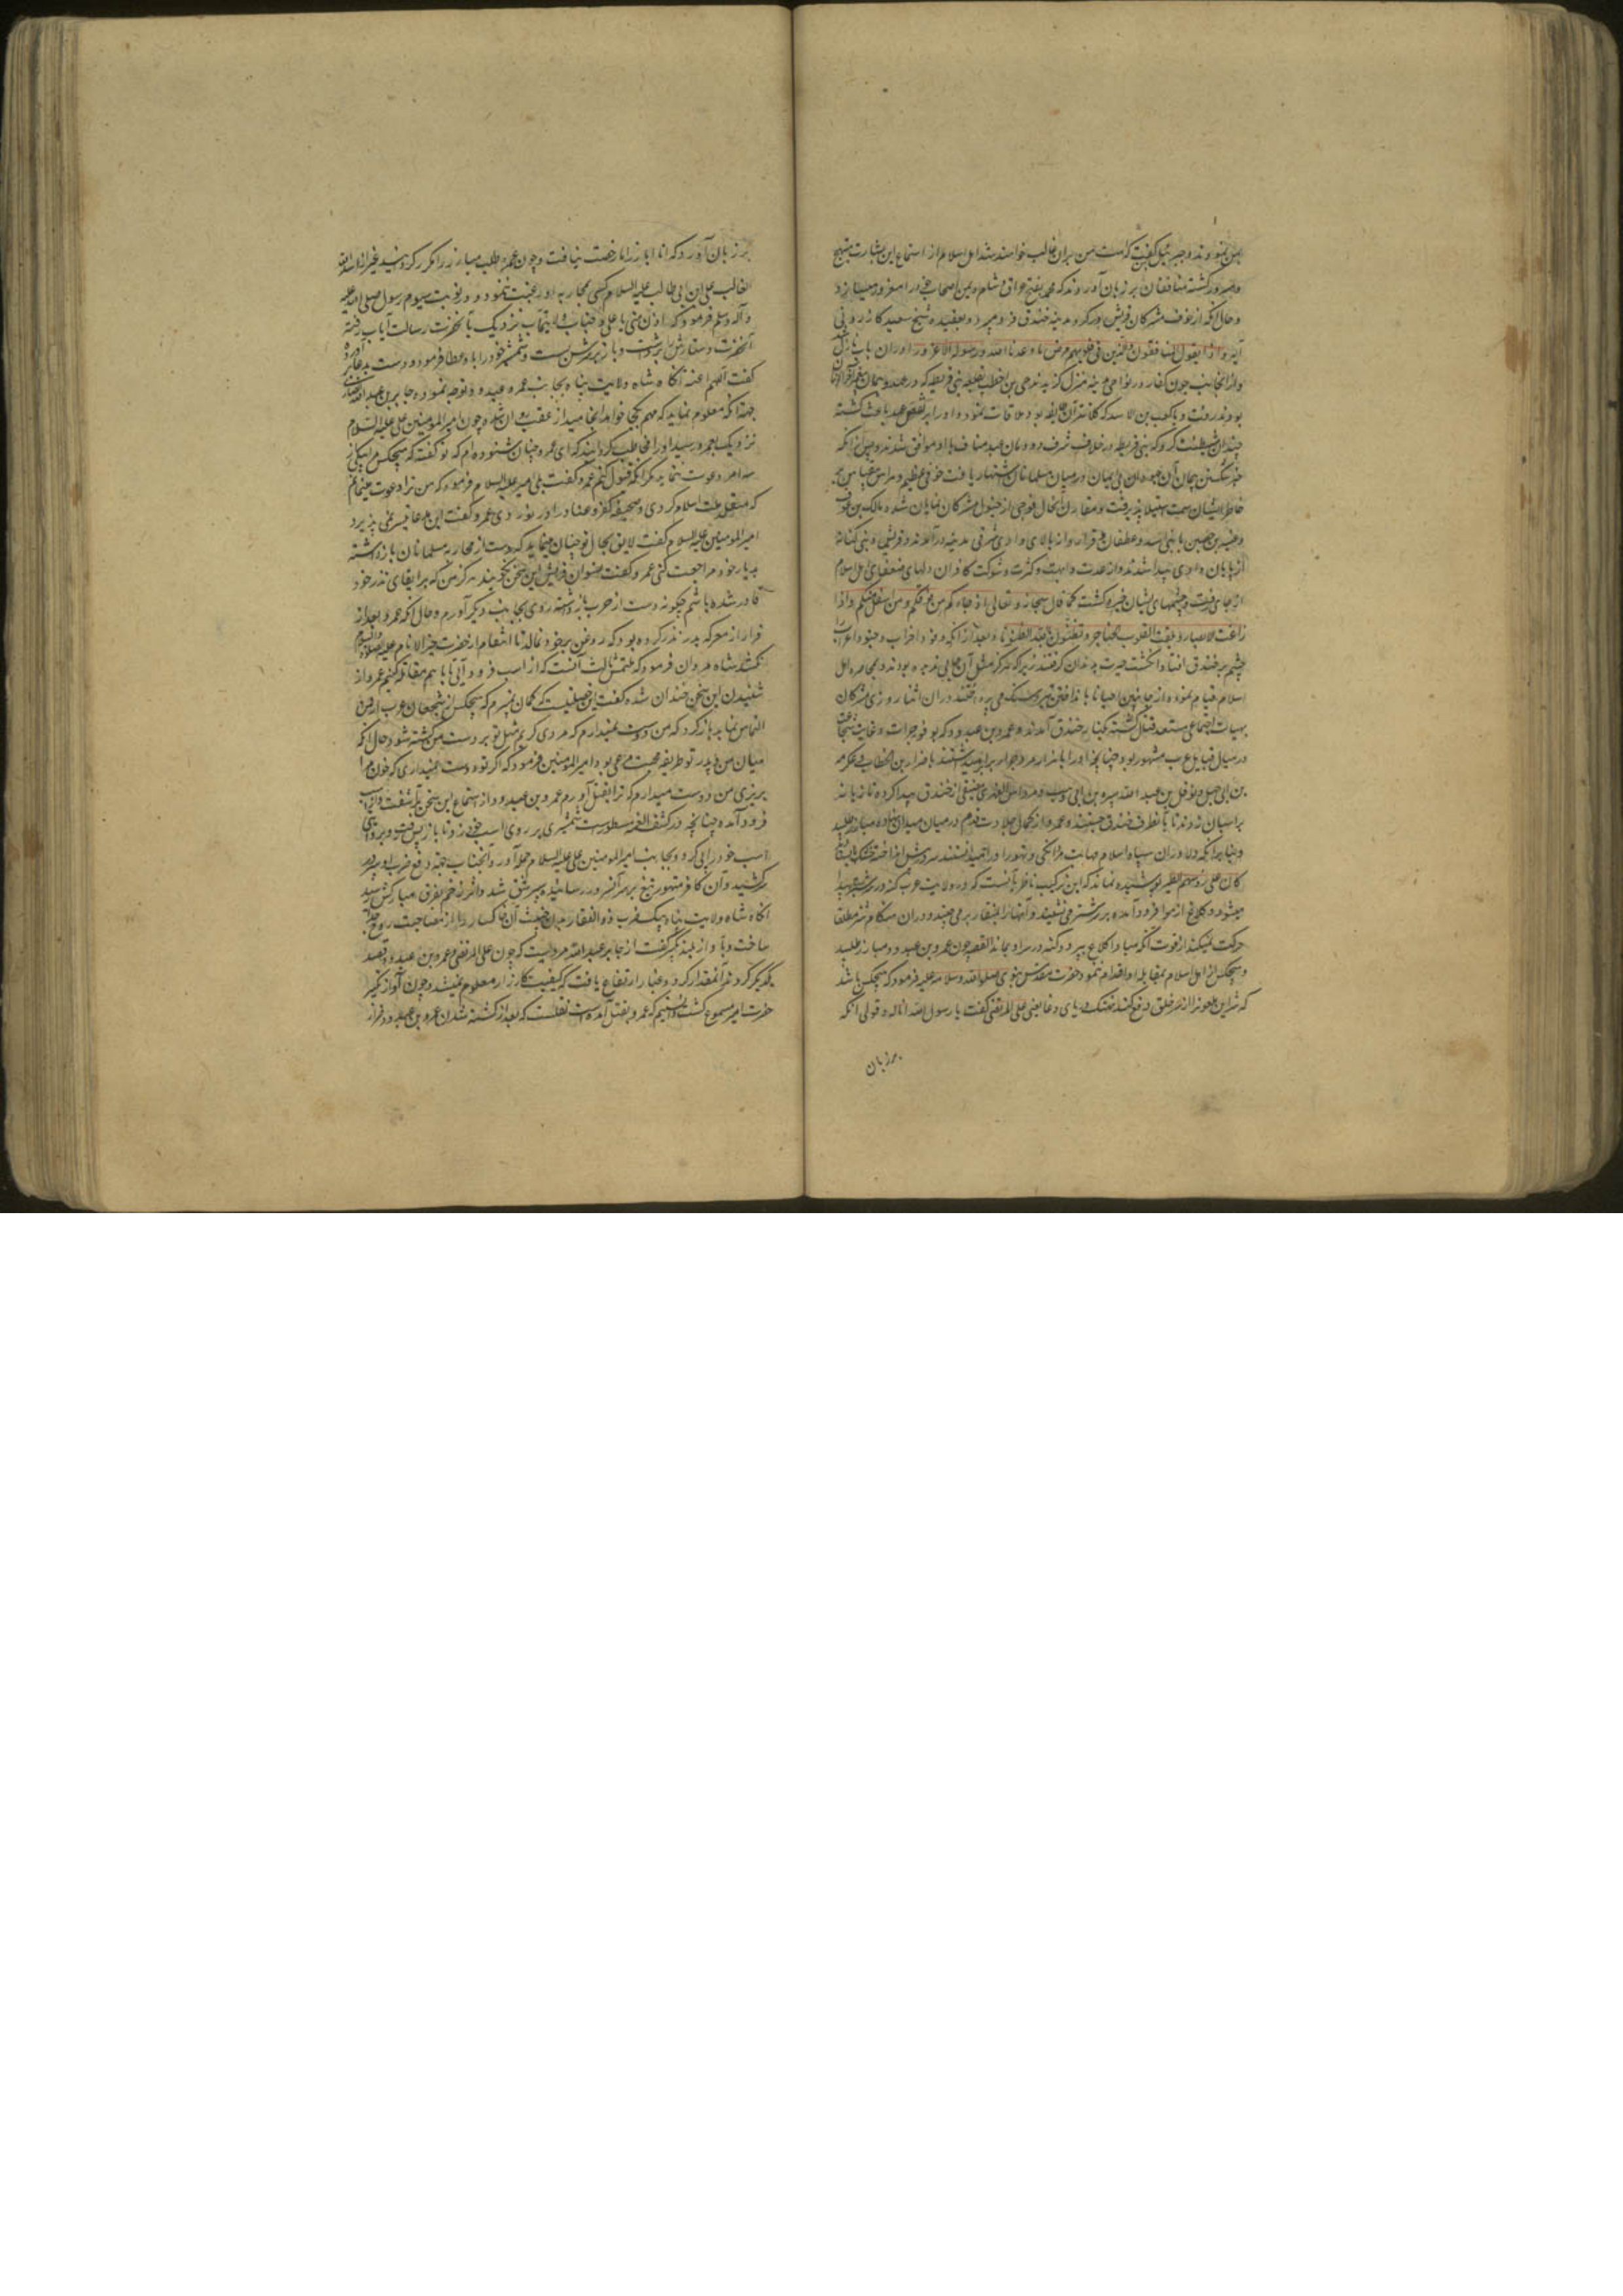 بمن نمود و جبرئیل گفت که امت من بران غالب خواهند شد اهل اسلام از استماع این بشارت مبتهج
و مسرور گشته منافقان بر زبان آوردند که محمد بفتح عراق و شام و یمن اصحاب خود را مغرور میسازد
و حال آنکه از خوف مشرکان قریش بر گرد مدینه خندق فرو میبرد و بعقیده شیخ سعید کازرونی
آیه و اذ یقول المنافقون و الذین فی قلوبهم مرض ما وعدنا الله و رسوله الا غرورا دران باب نازل شد
و از انجانب چون کفار در نواحی مدینه منزل گزیدند حی بن اخطب بقلعه بنی قریظه که در عهد و پیمان
بودند رفت و با کعب بن اسد که کلانتر آن طایفه بود ملاقات نمود و او را بر نقض عهد باعث گشته
چندان شیطنت کرد که بنی قریظه در خلاف شرف دودمان عبد مناف با او موافق شدند و پس از آنکه
خبر شکستن پیمان آن جهودان بی ایمان در میان مسلمانان اشتهار یافت خوفی عظیم و هراس
خاطر ایشان سمت استیلا پذیرفت و مقارن آنحال فوجی از خیول مشرکان نمایان شد و مالک بن عوف
و عیینه بن حصین با بنی اسد و غطفان از بالای وادی شرقی مدینه در آمدند و قریش و بنی کنانه
از پایان وادی پیدا شدند و از عدت و اهبت و کثرت و شوکت کافران دلهای ضعفای اهل اسلام
از جای برفت و چشمهای ایشان خیره گشت کما قال سبحانه و تعالی اذ جاءوکم من فوقکم و من اسفل منکم و اذ
زاغت الابصار و بلغت القلوب الحناجر و تظنون بالله الظنونا و بعد از آنکه وفود احزاب و جنود اعراب
چشم بر خندق افتاد انگشت حیرت بدندان گرفتند زیرا که هرگز مثل آن حالی ندیده بودند و بمحاصره اهل
اسلام قیام نموده از جانبین احیانا بانداختن تیر و سنگ می پرداختند دران اثنا روزی مشرکان
بهیات اجتماعی مستعد قتال گشته بکنار خندق آمدند و عمرو بن عبدود که بوفور جرات و غایت شجاعت
در میان قبایل عرب مشهور بود چنانچه او را با هزار مرد جرار برابر میداشتند با ضرار بن الخطاب و عکرمه
بن ابی جهل و نوفل بن عبد الله و هبیره بن ابی وهب و مرداس الفهری مضیقی از خندق پیدا کرده تازیانه
بر اسپان زدند تا بانطرف خندق جستند و عمرو از کمال جلادت قدم در میان میدان نهاده مبارز طلبید
و بنابر آنکه دلاوران سپاه اسلام صلابت مردانگی و تهور او را میدانستند سر در پیش انداخته خشک
کان علی رؤسهم الطیر پوشیده نماند که این ترکیب ناظر بآنست که در ولایت عرب کنه در سر شتر پیدا
میشود و کلاغ از هوا فرود آمده بر سر شتر می نشیند و آنها را بمنقار بر می چیند و دران هنگام شتر مطلقا
حرکت نمیکند از خوف آنکه مبادا کلاغ بپرد و کنه در سر او بماند القصه چون عمرو بن عبدود مبارز طلبید
و هیچکس از اهل اسلام بمقابله او اقدام ننمود حضرت مقدس نبوی صلوات الله و سلامه علیه فرمود که هیچکس باشد
که شر این ملعون را از سر خلق دفع کند نهنگ دریای وغا یعنی علی المرتضی گفت یا رسول الله انا له و قولی آنکه
بر زبان
بر زبان آورد که انا ابارزه اما رخصت نیافت و چون عمرو طلب مبارز را مکرر گردانید غیر از اسد الله
الغالب علی ابن ابی طالب علیه السلام کسی بمحاربه او رغبت ننمود و در نوبت سیوم رسول صلی الله علیه
و آله و سلم فرمود که ادن منی یا علی و جناب ولایتمآب نزدیک بآنحضرت رسالت ایاب رفته
آنحضرت دستارش برداشت و باز بر سرش بست و شمشیر خود را باو عطا فرمود و دست بدعا برآورده
گفت اللهم اعنه آنگاه شاه ولایت پناه بجانب عمرو عبدود توجه نموده جابر بن عبد الله انصاری
جهة آنکه معلوم نماید که مهم بکجا خواهد انجامید از عقب روان شد و چون امیر المومنین علی علیه السلام
نزدیک بعمرو رسید او را مخاطب گردانید که ای عمرو چنان شنوده ام که تو گفته که هیچکس مرا بیکی از
سه امر دعوت ننماید مگر آنکه قبول کنم عمرو گفت بلی امیر علیه السلام فرمود که من ترا دعوت مینمایم
که متقلد ملت اسلام گردی و صحیفه کفر و عناد را در نوردی عمرو گفت این مدعا تیسر نمی پذیرد
امیر المومنین علیه السلام گفت لایق بحال تو چنان مینماید که دست از محاربه مسلمانان باز داشته
بدیار خود مراجعت کنی عمرو گفت نسوان قریش این سخن نگویند هرگز من که بر ایفای نذر خود
قادر شده باشم چگونه دست از حرب باز داشته روی بجانب دیگر آورم و حال آنکه عمرو بعد از
فرار از معرکه بدر نذر کرده بود که روغن بر خود نمالد تا انتقام از حضرت خیر الانام علیه الصلوة و السلام
نکشد شاه مردان فرمود که ملتمس ثالث آنست که از اسب فرود آیی تا با هم مقاتله کنیم عمرو از
شنیدن این سخن خندان شده گفت این خصلتیست که گمان نمیبردم که هیچکس از شجعان عرب از من
التماس نماید باز گرد که من دوست نمیدارم که مردی کریم مثل تو بر دست من کشته شود و حال آنکه
میان من و پدر تو طریقه محبت مرعی بود امیر المومنین فرمود که اگر تو دوست نمیداری که خون مرا
بریزی من دوست میدارم که ترا بقتل آورم عمرو بن عبدود از استماع این سخن بر آشفت و از اسب
فرود آمده چنانچه در کشف الغمه مسطورست شمشیری بر روی اسب خود زد تا باز پس رفت و بروایتی
اسب خود را پی کرد و بجانب امیر المومنین علی علیه السلام حمله آورد و آنجناب جهة دفع ضرب او سپر در
سر کشید و آن کافر متهور تیغ بر سر آنسرور رسانیده سپر شق شد و اثر زخم بفرق مبارکش رسید
آنگاه شاه ولایت پناه بیک ضرب ذو الفقار بدن خبیث آن خاکسار را از مصاحبت روح جدا
ساخت و بآواز بلند تکبیر گفت از جابر بن عبد الله مرویست که چون علی المرتضی و عمرو بن عبدود قصد
یکدیگر کردند آنمقدار گرد و غبار ارتفاع یافت که کیفیت کارزار معلوم نمیشد و چون آواز تکبیر
حضرت امیر مسموع گشت دانستیم که عمرو بقتل آمده است نقلست که بعد از کشته شدن عمرو بن عبدود ضرار